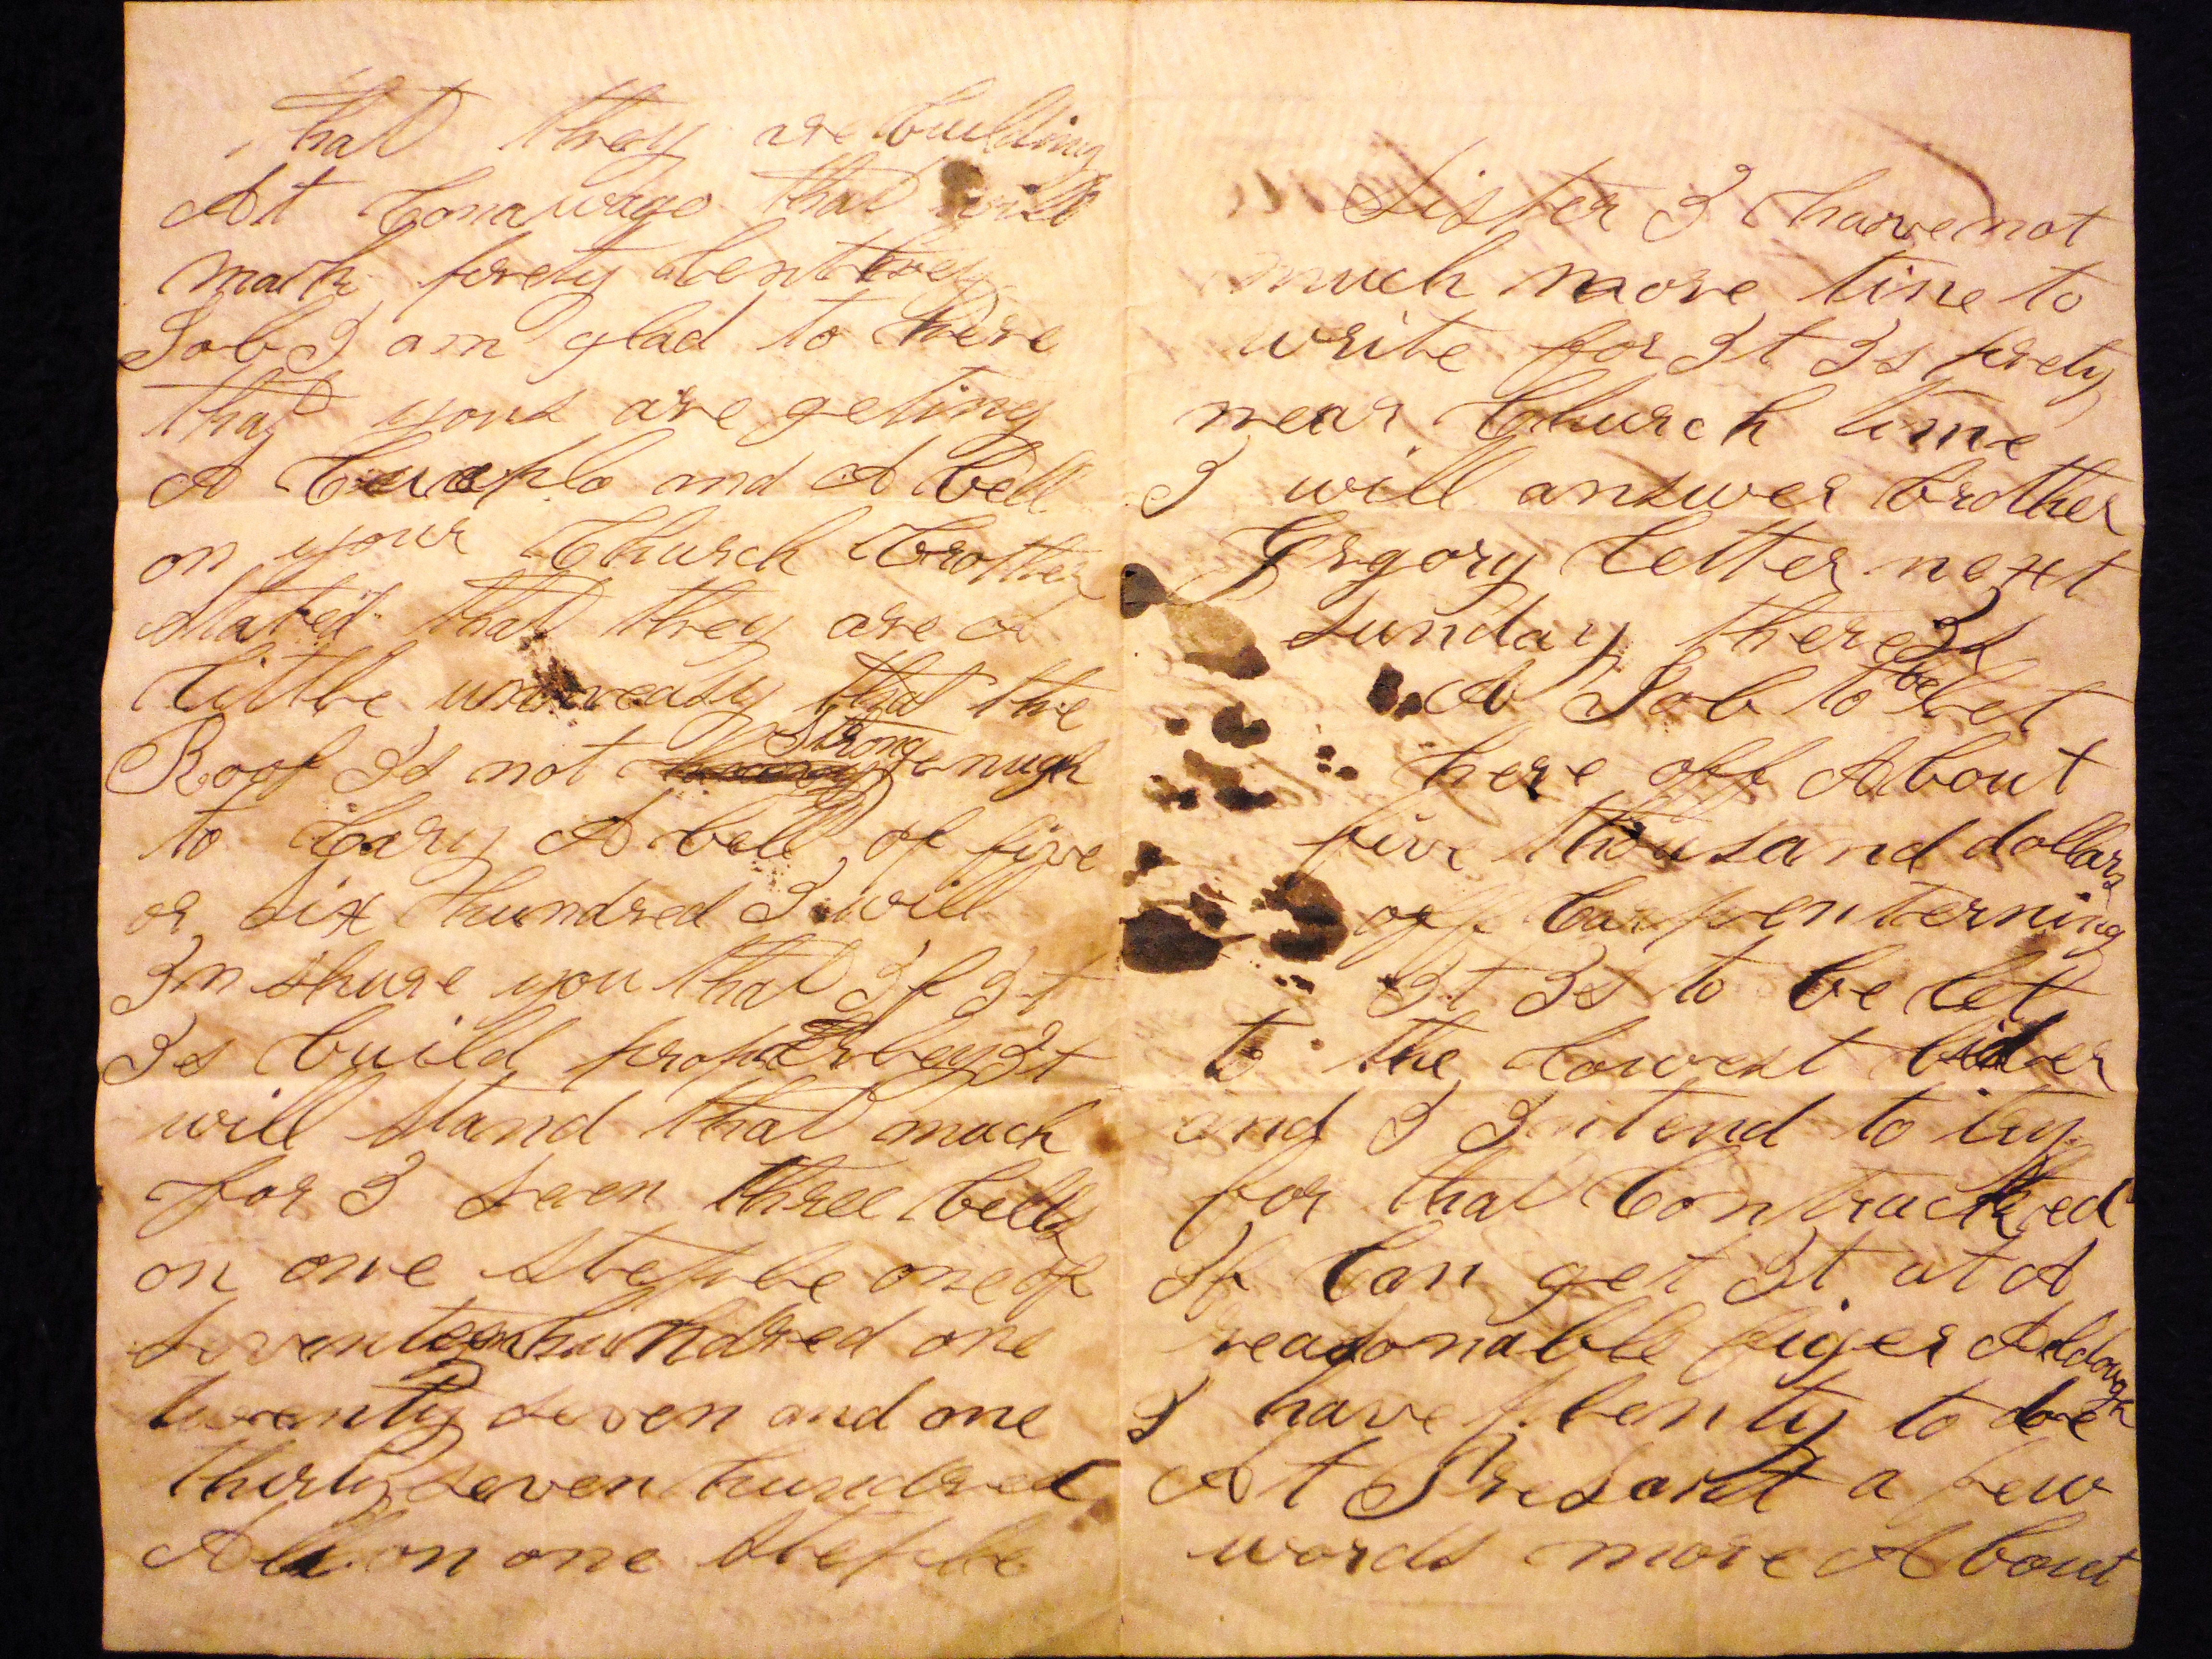 that they are building
At Conawago that will
mack prety
Job I am glad to here
that yous are geting
A and A bell
on your Church Brother
stated that they are a
little that the
Roof Is not Strong enugh
to Cary A bell of five
or six Hundred I will
Inshure you that If It
Is build It
will stand that much
for I seen three bells
on one steple one of
seventeen hundred one
twenty seven and one
thirty seven hundred
All on one steple
Sister I have not
much more tine to
write for It Is prety
near Church time
I will answer brother
Grgory letter next
sunday there Is
A Job to be let
here off About
five thousand dollars
off Carpenterning
It Is to be let
to the lowest bider
and I Intend to try
for that Contracked
If Can get It at A
reasonable figer Alldough
I have plenty to doe
At Presant a few
words more About